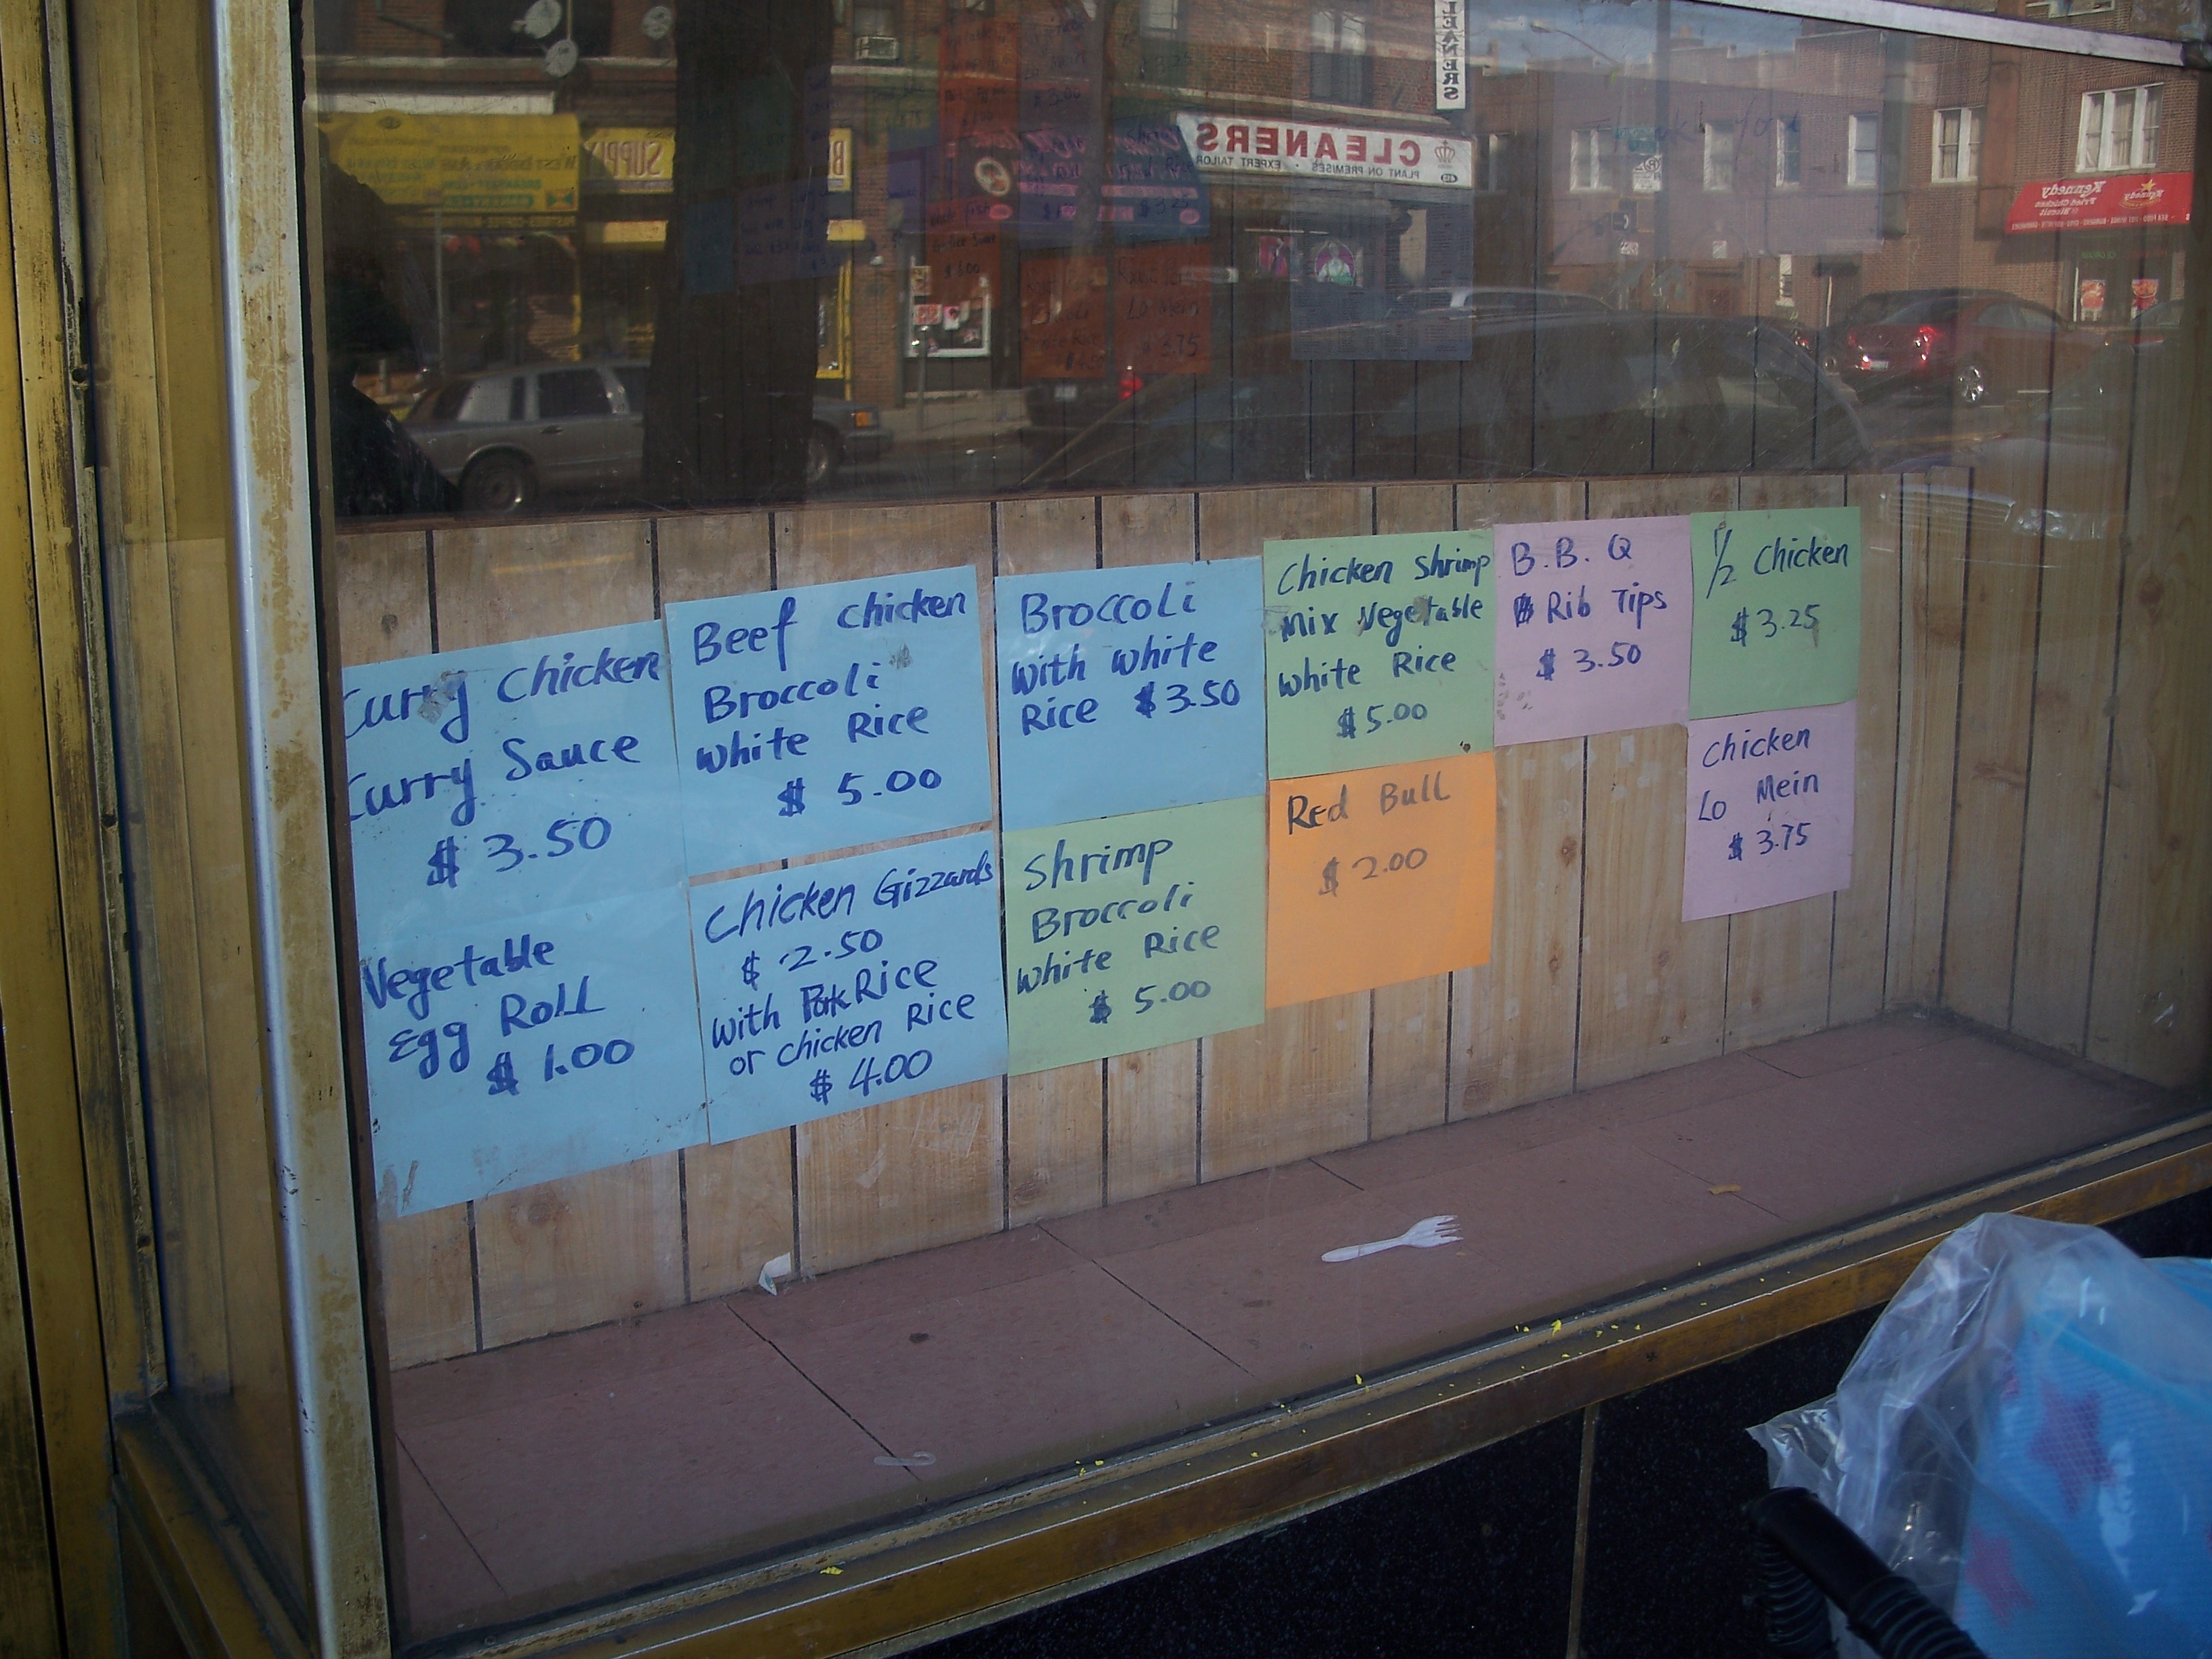 CLEANERS
PLANT ON PREMISES • EXPERT TAILOR
CLEANERS
SUPPLY
Kennedy
Fried Chicken
Thank You
Lo Mein
$3.75
Curry Chicken
Curry Sauce
$3.50
Vegetable
Egg Roll
$1.00
Beef Chicken
Broccoli
White Rice
$5.00
Chicken Gizzards
$2.50
With Pork Rice
or chicken Rice
$4.00
Broccoli
With White
Rice $3.50
Shrimp
Broccoli
White Rice
$5.00
Chicken Shrimp
Mix Vegetable
White Rice
$5.00
Red Bull
$2.00
B.B.Q
Rib Tips
$3.50
1/2 Chicken
$3.25
Chicken
Lo Mein
$3.75